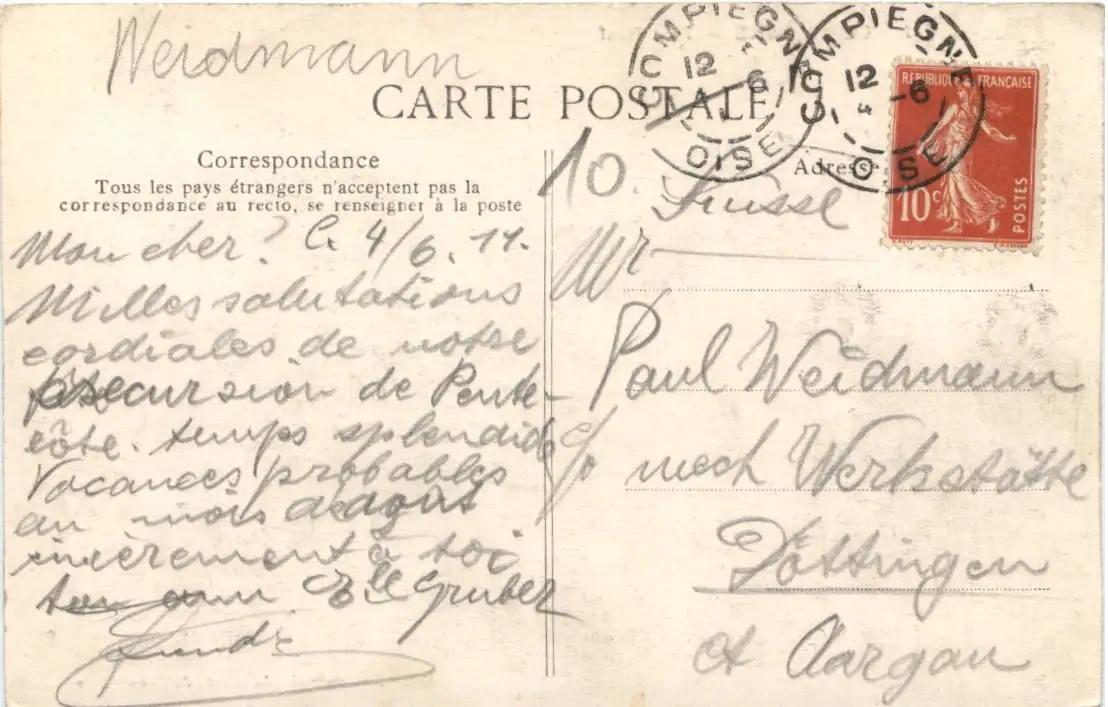 Weidmann
CARTE POSTALE
COMPIEGNE
12
6
OISE
COMPIEGNE
12
4 -6
OISE
REPUBLIQUE FRANÇAISE
10c
POSTES
Correspondance
Tous les pays étrangers n'acceptent pas la
correspondance au recto, se renseigner à la poste
Adresse
10.
Suisse
Mon cher? C. 4/6. 11.
Milles salutations
cordiales de notre
excursion de Pente-
côte. temps splendide
Vacances probables
au mois d'août
sincèrement à toi
ton ami Gruber
Mr
Paul Weidmann
c/o mech Werkstätte
Döttingen
Ct Aargau